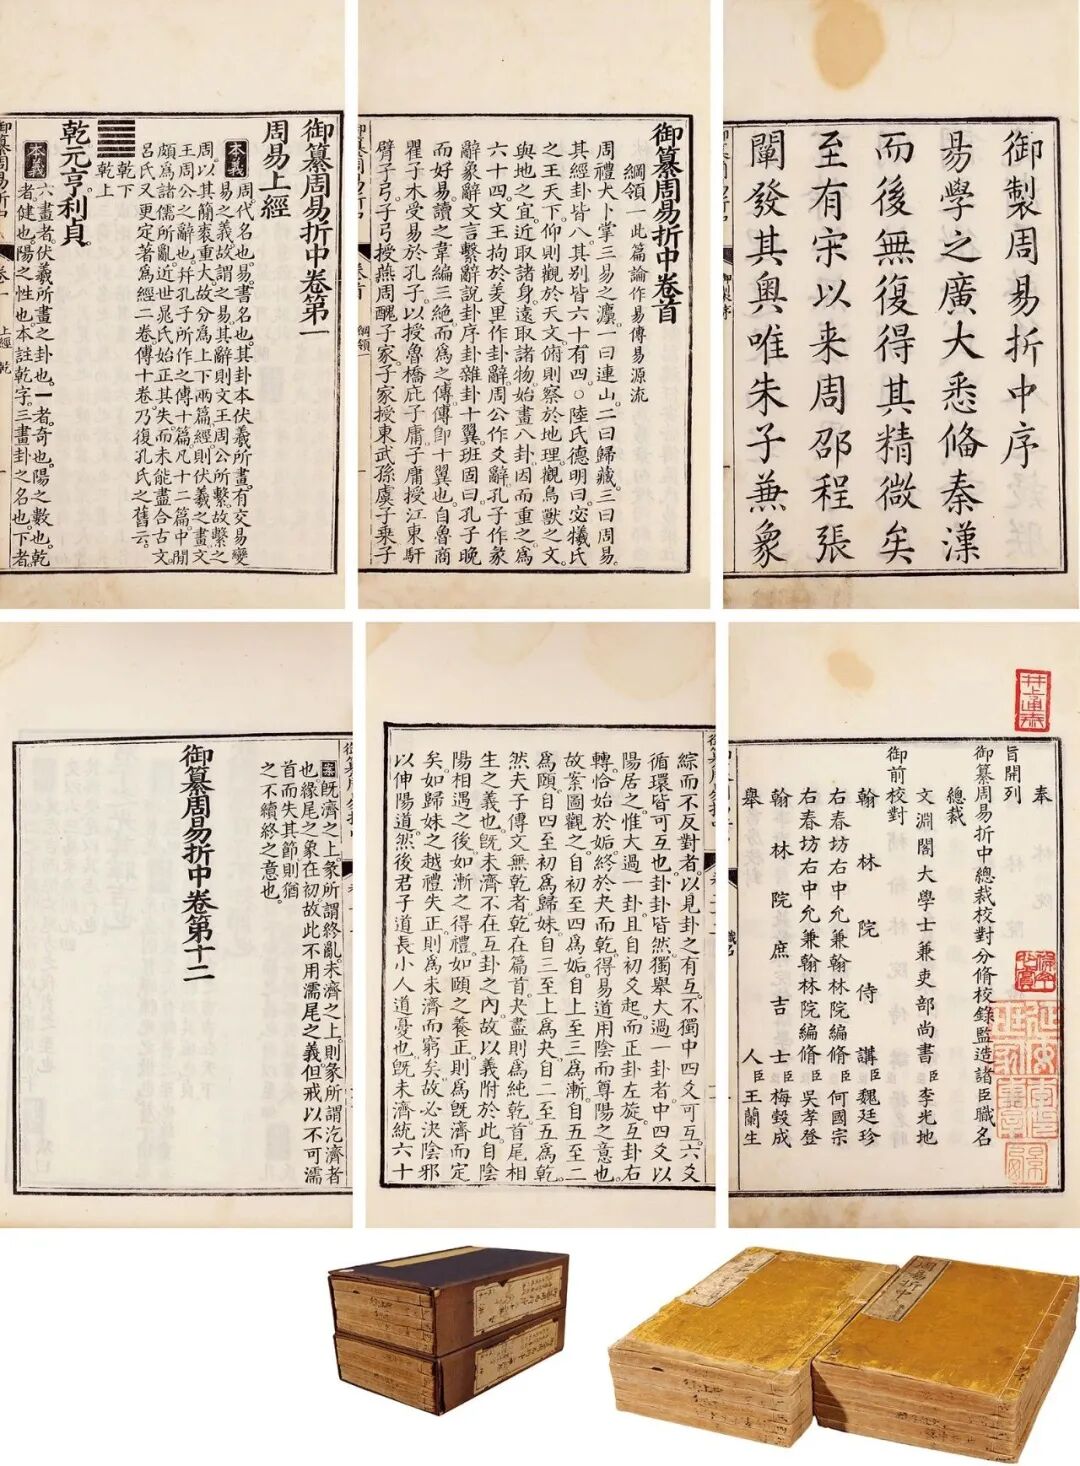 御製周易折中序
易學之廣大悉俻秦漢
而後無復得其精微矣
至有宋以来周邵程張
闡發其奧唯朱子兼象
御纂周易折中卷首
綱領一此篇論作易傳易源流
周禮大卜掌三易之灋一曰連山二曰歸藏三曰周易
其經卦皆八其別皆六十有四○陸氏德明曰宓犧氏
之王天下仰則觀於天文俯則察於地理觀鳥獸之文
與地之宜近取諸身遠取諸物始畫八卦因而重之為
六十四文王拘於羑里作卦辭周公作爻辭孔子作彖
辭象辭文言繫辭說卦序卦雜卦十翼班固曰孔子晚
而好易讀之韋編三絕而為之傳傳卽十翼也自魯商
瞿子木受易於孔子以授魯橋庇子庸子庸授江東馯
臂子弓子弓授燕周醜子家子家授東武孫虞子乘子
卷首
綱領一
御纂周易折中卷第一
周易上經
本義 周代名也易書名也其卦本伏羲所畫有交易變
易之義故謂之易其辭則文王周公所繫故繫之
周以其簡袠重大故分為上下兩篇經則伏羲之畫文
王周公之辭也并孔子所作之傳十篇凡十二篇中間
頗為諸儒所亂近世晁氏始正其失而未能盡合古文
呂氏又更定著為經二卷傳十卷乃復孔氏之舊云
乾下
乾上
乾元亨利貞
本義 六畫者伏羲所畫之卦也一者奇也陽之數也乾
者健也陽之性也本註乾字三畫卦之名也下者
御纂周易折中
卷一
上經 乾
井上通泰
奉
旨開列
御纂周易折中總裁校對分脩校錄監造諸臣職名
總裁
文淵閣大學士兼吏部尚書臣李光地
御前校對
翰林院侍講臣魏廷珍
右春坊右中允兼翰林院編脩臣何國宗
右春坊右中允兼翰林院編脩臣吳孝登
翰林院庶吉士臣梅瑴成
舉人臣王蘭生
職名
綜而不反對者以見卦之有互不獨中四爻可互六爻
循環皆可互也卦卦皆然獨舉大過一卦者中四爻以
陽居之惟大過一卦且自初爻起而正卦左旋互卦右
轉恰始於姤終於夬而乾得易道用陰而尊陽之意也
故案圖觀之自初至四為姤自上至三為漸自五至二
為頤自四至初為歸妹自三至上為夬自二至五為乾
然夫子傳文無乾者乾在篇首夬盡則為純乾首尾相
生之義也既未濟不在互卦之內故以義附於此自陰
陽相遇之後如漸之得禮如頤之養正則為既濟而定
矣如歸妹之越禮失正則為未濟而窮矣故必決陰邪
以伸陽道然後君子道長小人道憂也既未濟統六十
案 既濟之上象所謂終亂未濟之上則象所謂汔濟者
也緣尾之象在初故此不用濡尾之義但戒以不可濡
首而失其節則猶
之不續終之意也
御纂周易折中卷第十二
周易折中